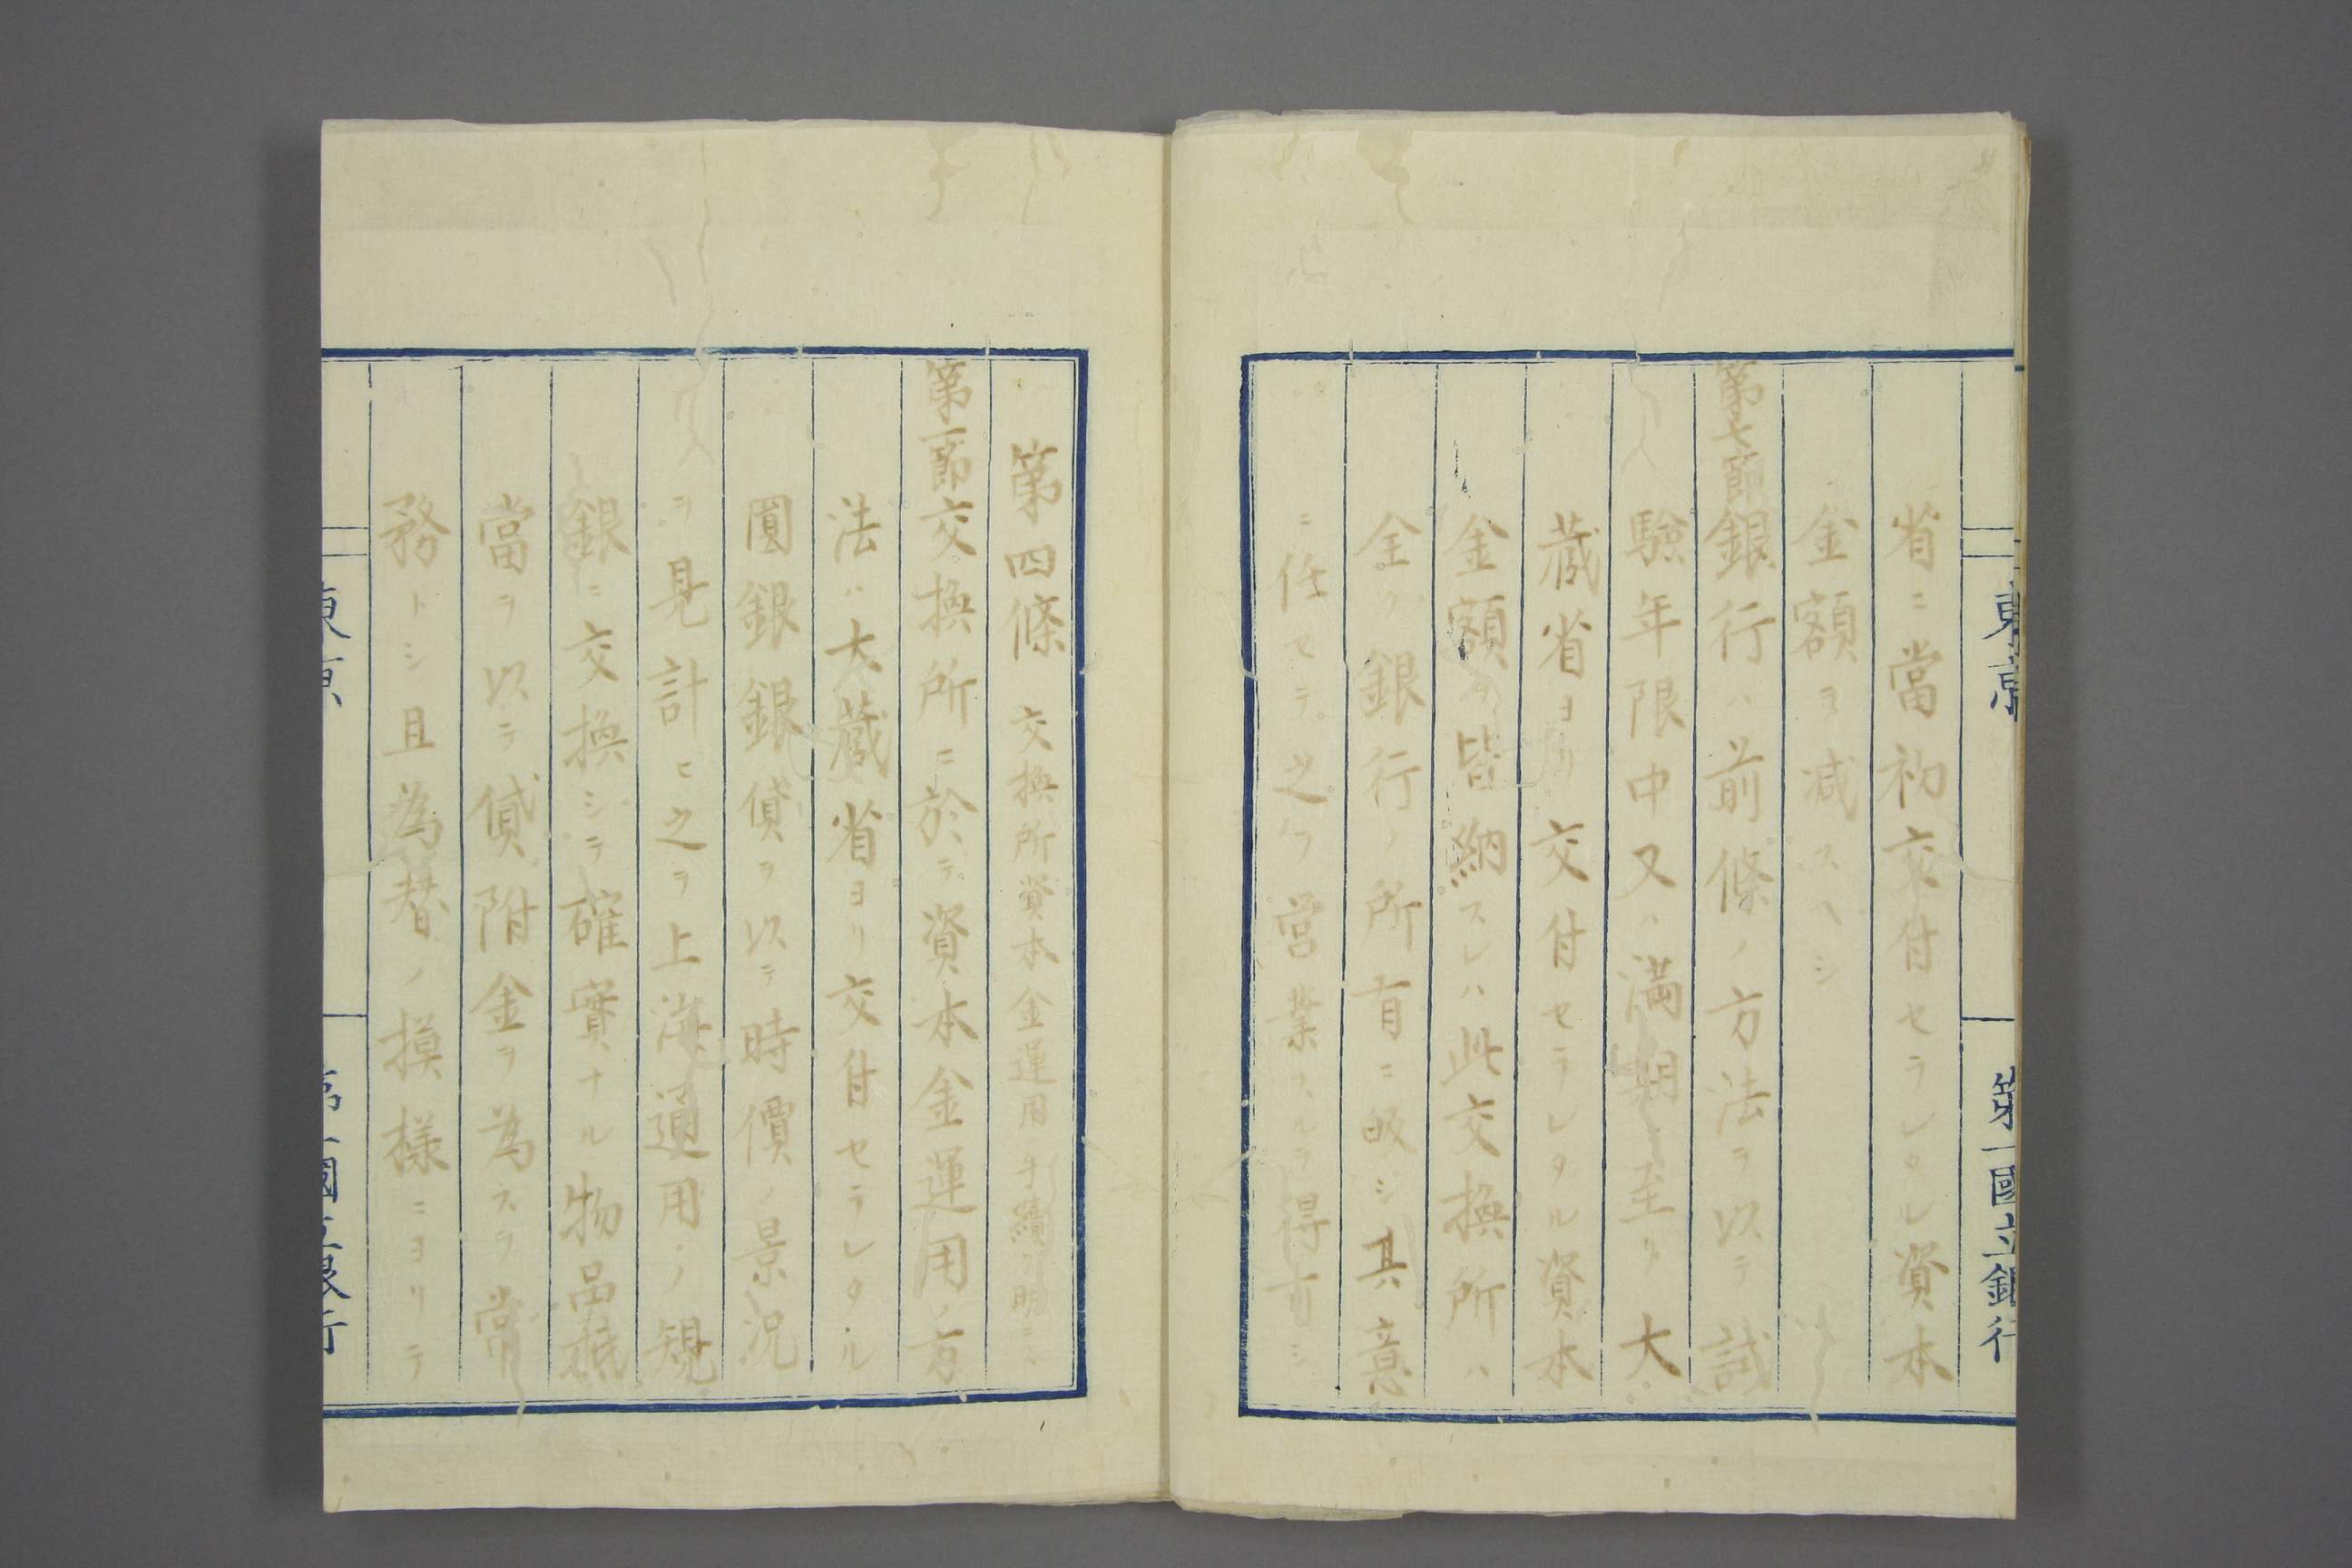 東京 第一國立銀行
省ニ當初交付セラレタル資本
金額ヲ減スヘシ
第七節銀行ハ前條ノ方法ヲ以テ試
驗年限中又ハ満期ニ至リ大
蔵省ヨリ交付セラレタル資本
金額ヲ皆納スレハ此交換所ハ
全ク銀行ノ所有ニ皈シ其意
ニ任セテ之ヲ営業スルヲ得可シ
第四條 交換所資本金運用手續ヲ明ニス
第一節交換所ニ於テ資本金運用ノ方
法ハ大蔵省ヨリ交付セラレタル
圓銀銀貨ヲ以テ時價ノ景況
ヲ見計ヒ之ヲ上海通用ノ規
銀ニ交換シテ確實ナル物品抵
當ヲ以テ貸附金ヲ為スヲ常
務トシ且為替ノ摸様ニヨリテ
東京 第一國立銀行